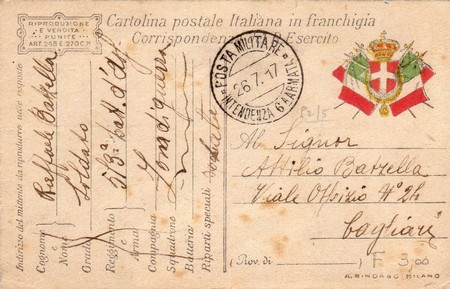 RIPRODUZIONE
E VENDITA
PUNITE
ART. 248 E 270 C.P.
Cartolina postale Italiana in franchigia
Corrispondenza Esercito
POSTA MILITARE
26.7.17
INTENDENZA 6A ARMATA
Indirizzo del mittente da riprodurre nelle risposte
Cognome e Nome
Raffaele Barzella
Grado
Soldato
Reggimento e Arma
Compagnia
Squadrone
Batteria
Riparti speciali
Zona di guerra
52/5
Al Signor
Attilio Barzella
Viale Ospizio N° 24
Cagliari
(Prov. di )
F 3,00
A. RINDAGO MILANO